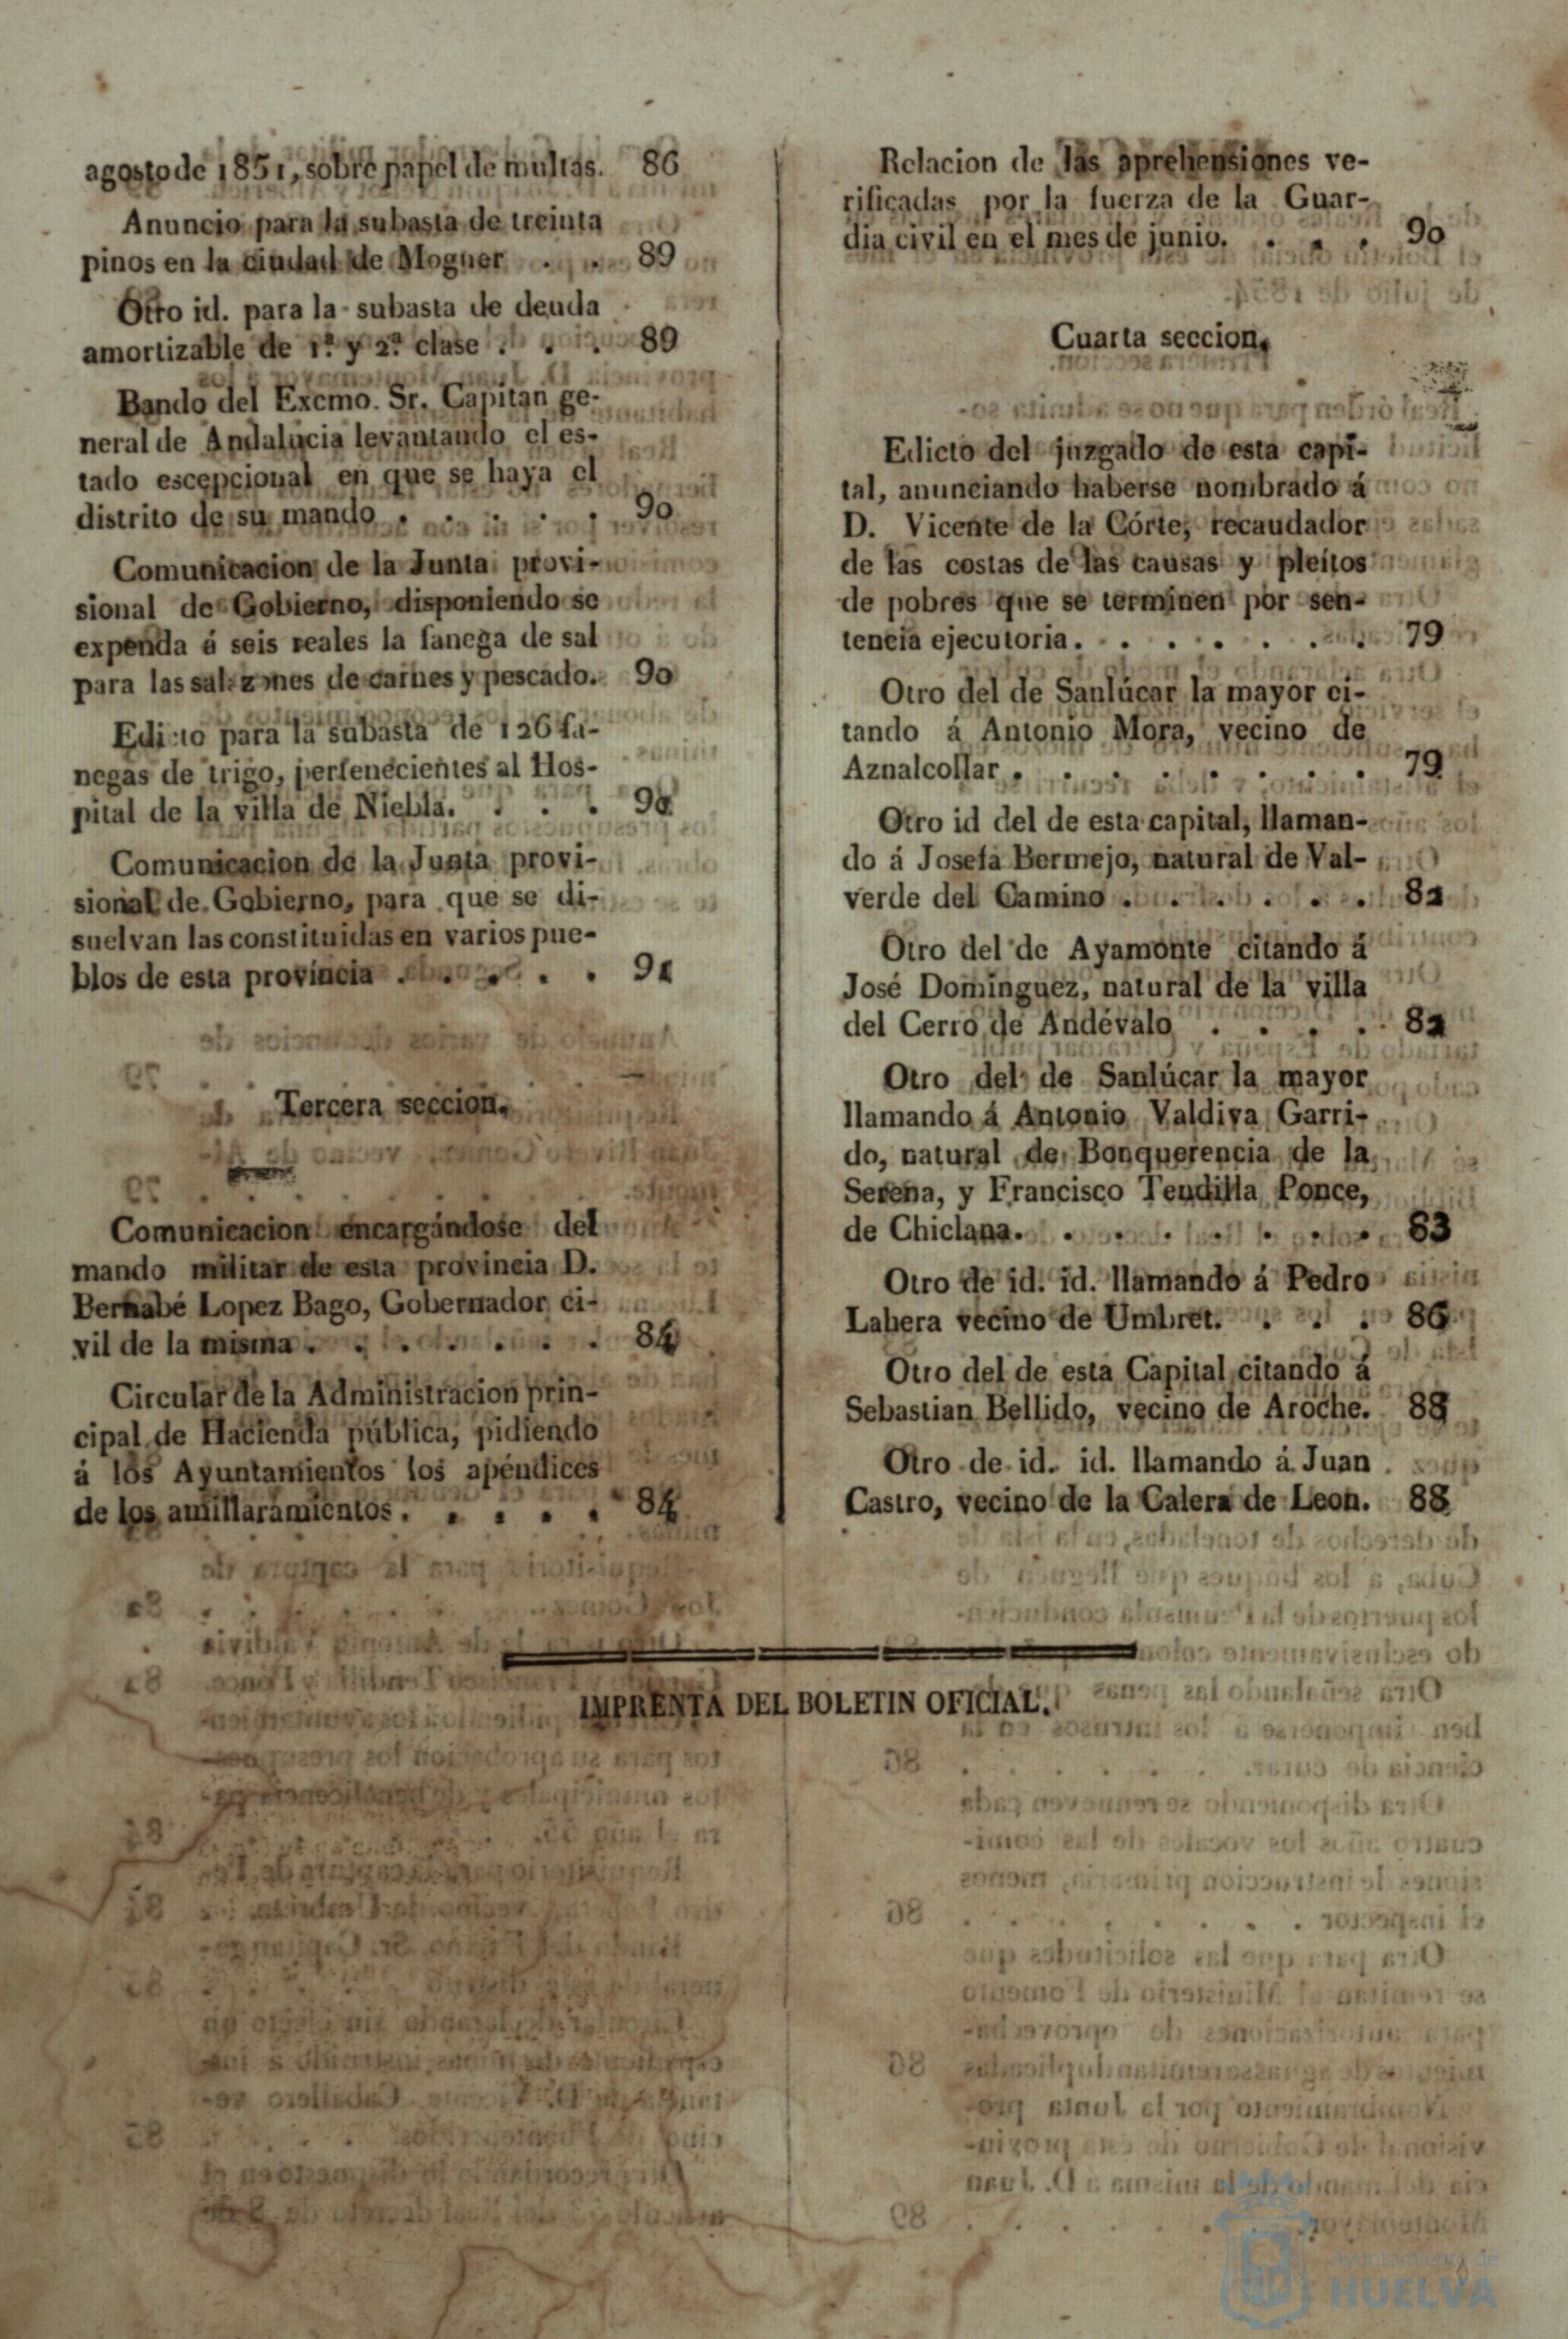 agosto de 1851, sobre papel de multas. 86
Anuncio para la subasta de treinta
pinos en la ciudad de Moguer . . 89
Otro id. para la subasta de deuda
amortizable de 1.ª y 2.ª clase . . . 89
Bando del Excmo. Sr. Capitan ge-
neral de Andalucia levantando el es-
tado escepcional en que se haya el
distrito de su mando . . . . . 90
Comunicacion de la Junta provi-
sional de Gobierno, disponiendo se
expenda á seis reales la fanega de sal
para las salazones de carnes y pescado. 90
Edicto para la subasta de 126 fa-
negas de trigo, pertenecientes al Hos-
pital de la villa de Niebla. . . .
Comunicacion de la Junta provi-
sional de Gobierno, para que se di-
suelvan las constituidas en varios pue-
blos de esta provincia . . . . . 91
Tercera seccion.
Comunicacion encargándose del
mando militar de esta provincia D.
Bernabé Lopez Bago, Gobernador ci-
vil de la misma . . . . . . . 84
Circular de la Administracion prin-
cipal de Hacienda pública, pidiendo
á los Ayuntamientos los apéndices
de los amillaramientos. . . . . 84
Relacion de las aprehensiones ve-
rificadas por la fuerza de la Guar-
dia civil en el mes de junio. . . . 90
Cuarta seccion.
Edicto del juzgado de esta capi-
tal, anunciando haberse nombrado á
D. Vicente de la Córte, recaudador
de las costas de las causas y pleitos
de pobres que se terminen por sen-
tencia ejecutoria. . . . . . . 79
Otro del de Sanlúcar la mayor ci-
tando á Antonio Mora, vecino de
Aznalcollar . . . . . . . . 79
Otro id del de esta capital, llaman-
do á Josefa Bermejo, natural de Val-
verde del Camino . . . . . . 82
Otro del de Ayamonte citando á
José Dominguez, natural de la villa
del Cerro de Andévalo . . . . 82
Otro del de Sanlúcar la mayor
llamando á Antonio Valdiva Garri-
do, natural de Bonquerencia de la
Serena, y Francisco Tendilla Ponce,
de Chiclana. . . . . . . . . 83
Otro de id. id. llamando á Pedro
Labera vecino de Umbret. . . . 86
Otro del de esta Capital citando á
Sebastian Bellido, vecino de Aroche. 88
Otro de id. id. llamando á Juan
Castro, vecino de la Calera de Leon. 88
IMPRENTA DEL BOLETIN OFICIAL.
Ayuntamiento de
HUELVA